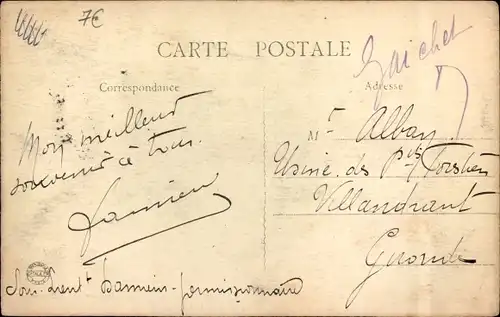 7€
CARTE POSTALE
Guichet
Correspondance
Adresse
Mon meilleur
souvenir à tous.
Damien
Mr Albay
Usine des Pts Forestiers
Villandraut
Gironde
Sous-Lieutt Damien - permissionnaire